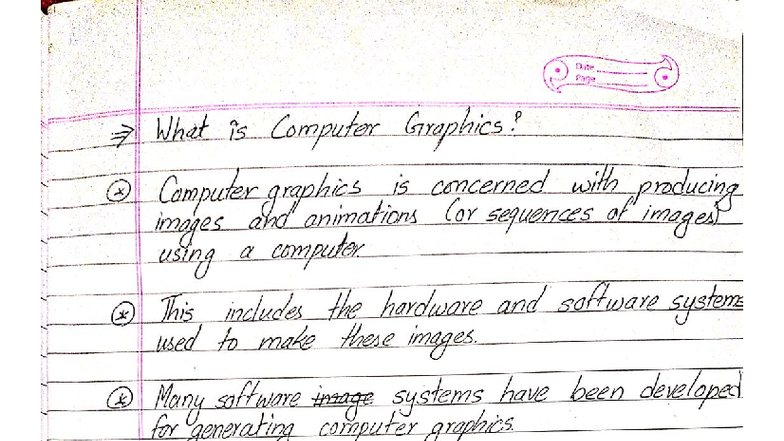 Date
Page
⇒ What is Computer Graphics?
⊛ Computer graphics is concerned with producing
images and animations (or sequences of images)
using a computer.
⊛ This includes the hardware and software systems
used to make these images.
⊛ Many software image systems have been developed
for generating computer graphics.